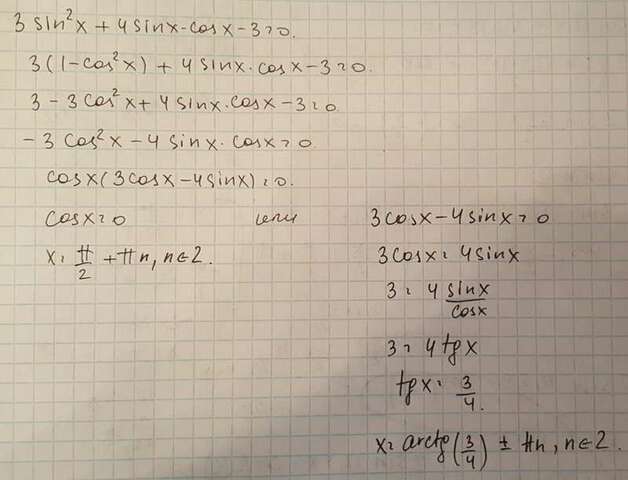 3 sin²x + 4 sinx·cosx - 3 = 0.
3(1-cos²x) + 4 sinx·cosx - 3 = 0.
3 - 3cos²x + 4 sinx·cosx - 3 = 0.
- 3 cos²x - 4 sinx·cosx = 0.
cosx(3cosx - 4sinx) = 0.
cosx = 0 или 3cosx - 4sinx = 0
x = π/2 + πn, n∈Z.
3cosx = 4sinx
3 = 4 sinx/cosx
3 = 4 tgx
tgx = 3/4.
x = arctg(3/4) ± πn, n∈Z.